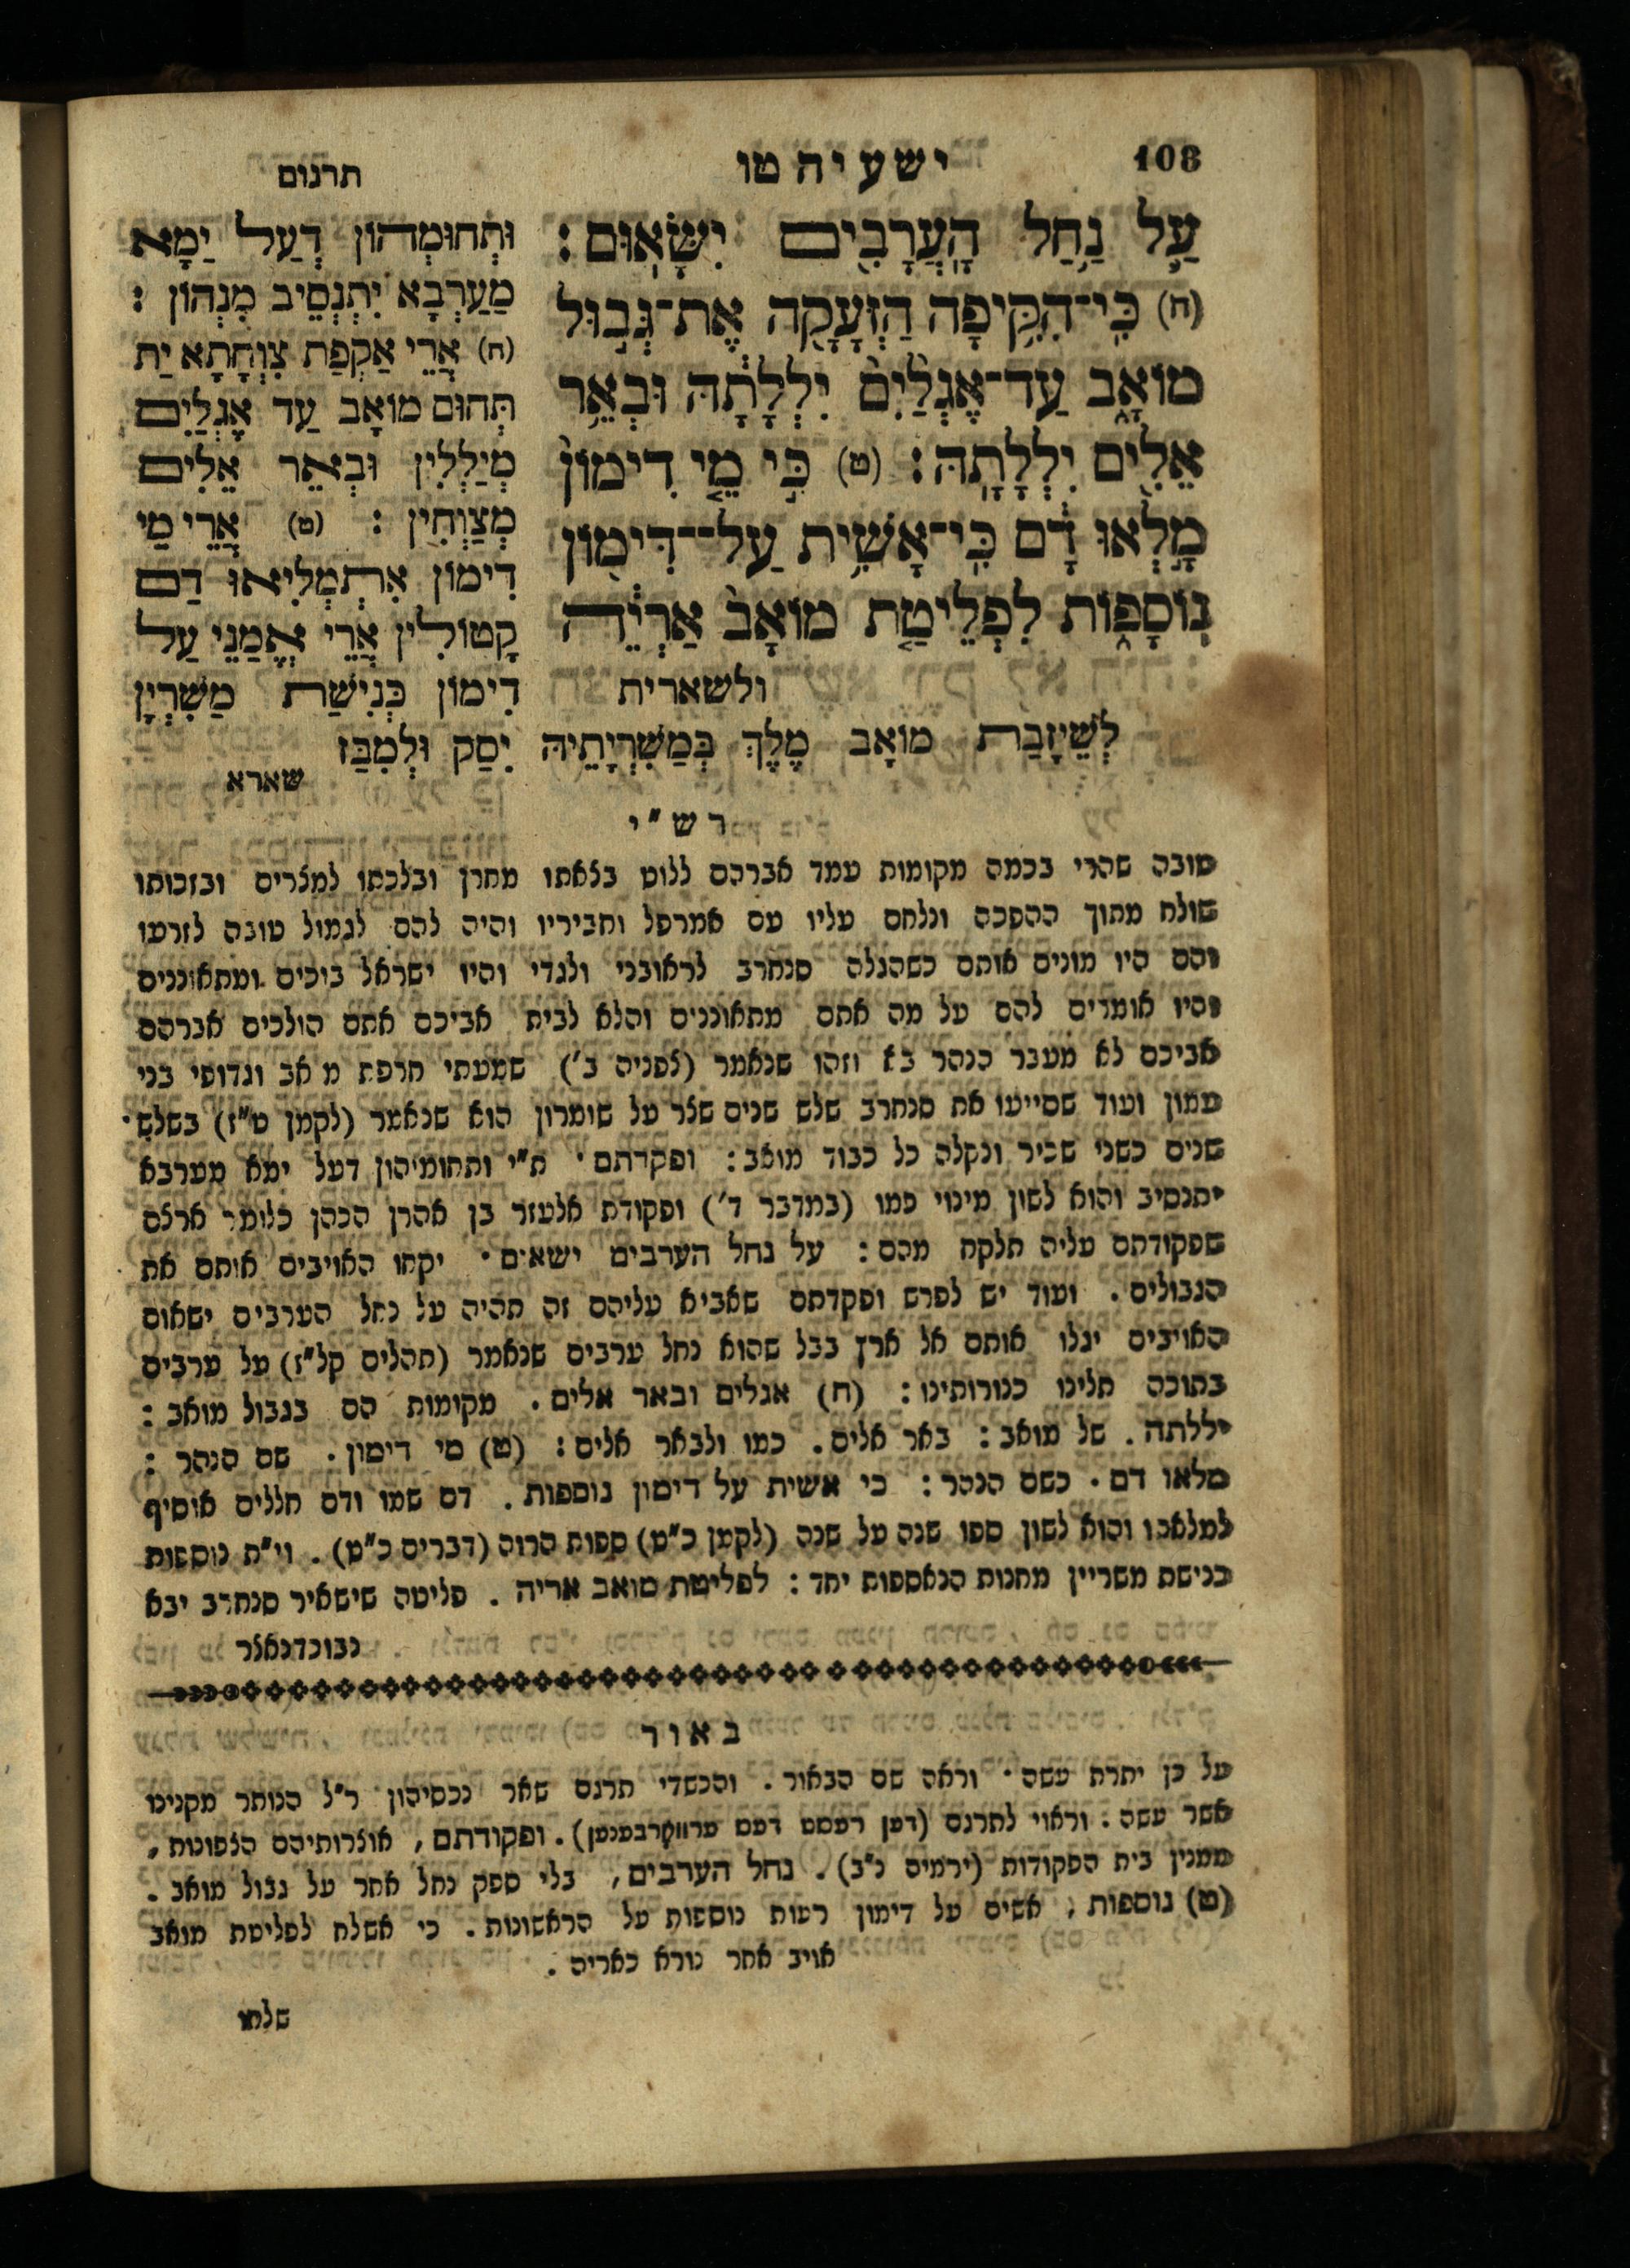 108
ישעיה טו
תרגום
עַל נַחַל הָעֲרָבִים יִשָּׂאוּם :
(ח) כִּי־הִקִּיפָה הַזְּעָקָה אֶת־גְּבוּל
מוֹאָב עַד־אֶגְלַיִם יִלְלָתָהּ וּבְאֵר
אֵלִים יִלְלָתָהּ : (ט) כִּי מֵי דִימוֹן
מָלְאוּ דָם כִּי־אָשִׁית עַל־דִּימוֹן
נוֹסָפוֹת לִפְלֵיטַת מוֹאָב אַרְיֵה
ולשארית
וּתְחוּמְהוֹן דְעַל יַמָא
מַעַרְבָא יִתְנְסֵיב מִנְהוֹן :
(ח) אֲרֵי אַקְפַת צִוְחָתָא יַת
תְּחוּם מוֹאָב עַד אֶגְלַיִם
מְיַלְלִין וּבְאֵר אֵלִים
מְצַוְחִין : (ט) אֲרֵי מֵי
דִימוֹן אִתְמְלִיאוּ דַם
קָטוֹלִין אֲרֵי אֱמַנֵי עַל
דִימוֹן כְּנִישַׁת מַשִׁרְיָן
לְשֵׁיזָבַת מוֹאָב מֶלֶךְ בְּמַשִׁרְיָתֵיהּ יִסַק וּלְמִבַּז
שארא
רש"י
טובה שהרי בכמה מקומות עמד אברהם ללוט בצאתו מחרן ובלכתו למצרים ובזכותו
שולח מתוך ההפכה ונלחם עליו עם אמרפל וחביריו והיה להם לגמול טובה לזרעו
והם היו מונים אותם כשהגלה סנחרב לראובני ולגדי והיו ישראל בוכים ומתאוננים
והיו אומרים להם על מה אתם מתאוננים והלא לבית אביכם אתם הולכים אברהם
אביכם לא מעבר הנהר בא וזהו שנאמר (צפניה ב') שמעתי חרפת מאב וגדופי בני
עמון ועוד שסייעו את סנחרב שלש שנים שצר על שומרון הוא שנאמר (לקמן ט"ז) בשלש
שנים כשני שכיר ונקלה כל כבוד מואב : ופקדתם · ת"י ותחומיהון דעל ימא מערבא
יתנסיב והוא לשון מינוי כמו (במדבר ד') ופקודת אלעזר בן אהרן הכהן כלומר ארצם
שפקודתם עליה תלקח מהם : על נחל הערבים ישאום · יקחו האויבים אותם את
הגבולים . ועוד יש לפרש ופקדתם שאביא עליהם זה תהיה על נחל הערבים ישאום
האויבים יגלו אותם אל ארץ בבל שהוא נחל ערבים שנאמר (תהלים קל"ז) על ערבים
בתוכה תלינו כנורותינו : (ח) אגלים ובאר אלים . מקומות הם בגבול מואב :
יללתה . של מואב : באר אלים . כמו ולבאר אלים : (ט) מי דימון . שם הנהר :
מלאו דם · כשם הנהר : כי אשית על דימון נוספות . דם שמו ודם חללים אוסיף
למלאכו והוא לשון ספו שנה על שנה (לקמן כ"ט) ספות הרוה (דברים כ"ט) . וי"ת נוספות
כנישת משריין מחנות הנאספות יחד : לפליטת מואב אריה . פליטה שישאיר סנחרב יבא
נבוכדנאצר
באור
על כן יתרת עשה · וראה שם הבאור . והכשדי תרגם שאר נכסיהון ר"ל הנותר מקנינו
אשר עשה . וראוי לתרגם (דען רעסט דעס ערווארבענען) . ופקודתם , אוצרותיהם הצפונות ,
מענין בית הפקודות (ירמיה נ"ב) . נחל הערבים , בלי ספק נחל אחר על גבול מואב .
(ט) נוספות , אשים על דימון רעות נוספות על הראשונות . כי אשלח לפליטת מואב
אויב אחר נורא כאריה .
שלחו